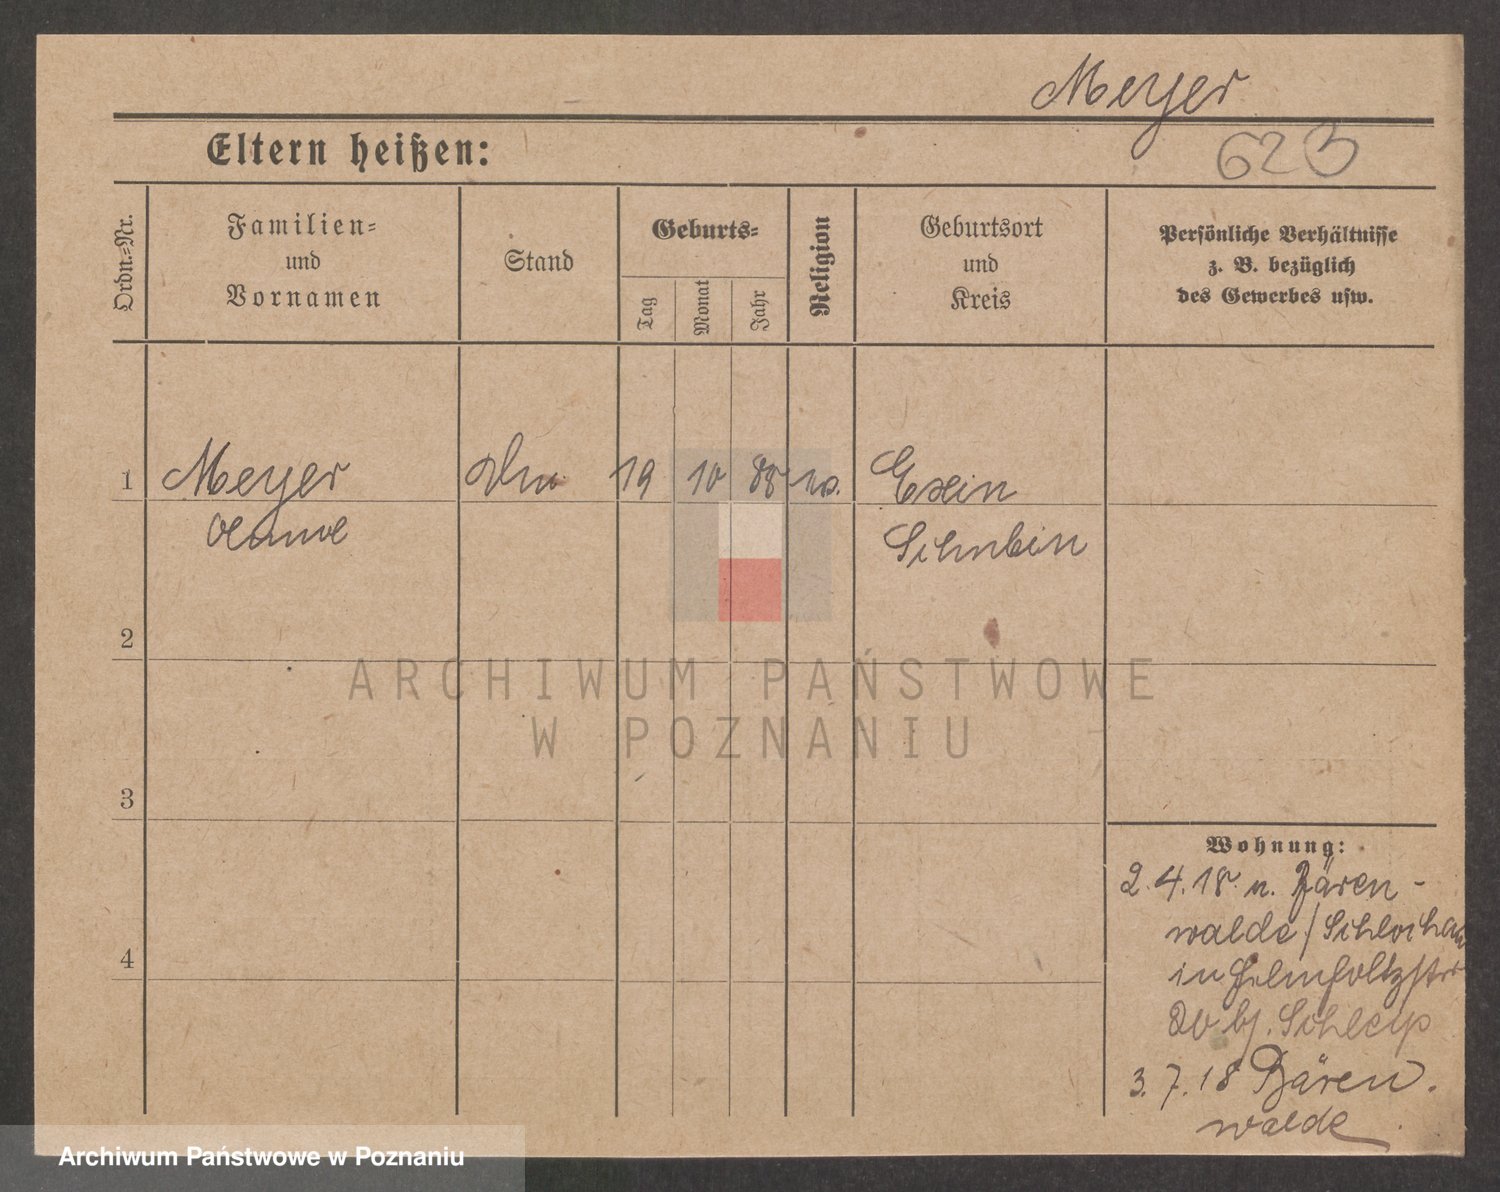 Meyer
623
Eltern heißen:
Ordn.=Nr.
Familien=
und
Vornamen
Stand
Geburts=
Tag
Monat
Jahr
Religion
Geburtsort
und
Kreis
Persönliche Verhältnisse
z. B. bezüglich
des Gewerbes usw.
1 Meyer 19 10 88 Exin
Schubin
2
ARCHIWUM PAŃSTWOWE
W POZNANIU
3
4
Wohnung:
2.4.18. n. Bären-
walde/Schlochau
in Helmholtzstr
20 bj. Schleip
3.7.18 Bären.
walde
Archiwum Państwowe w Poznaniu